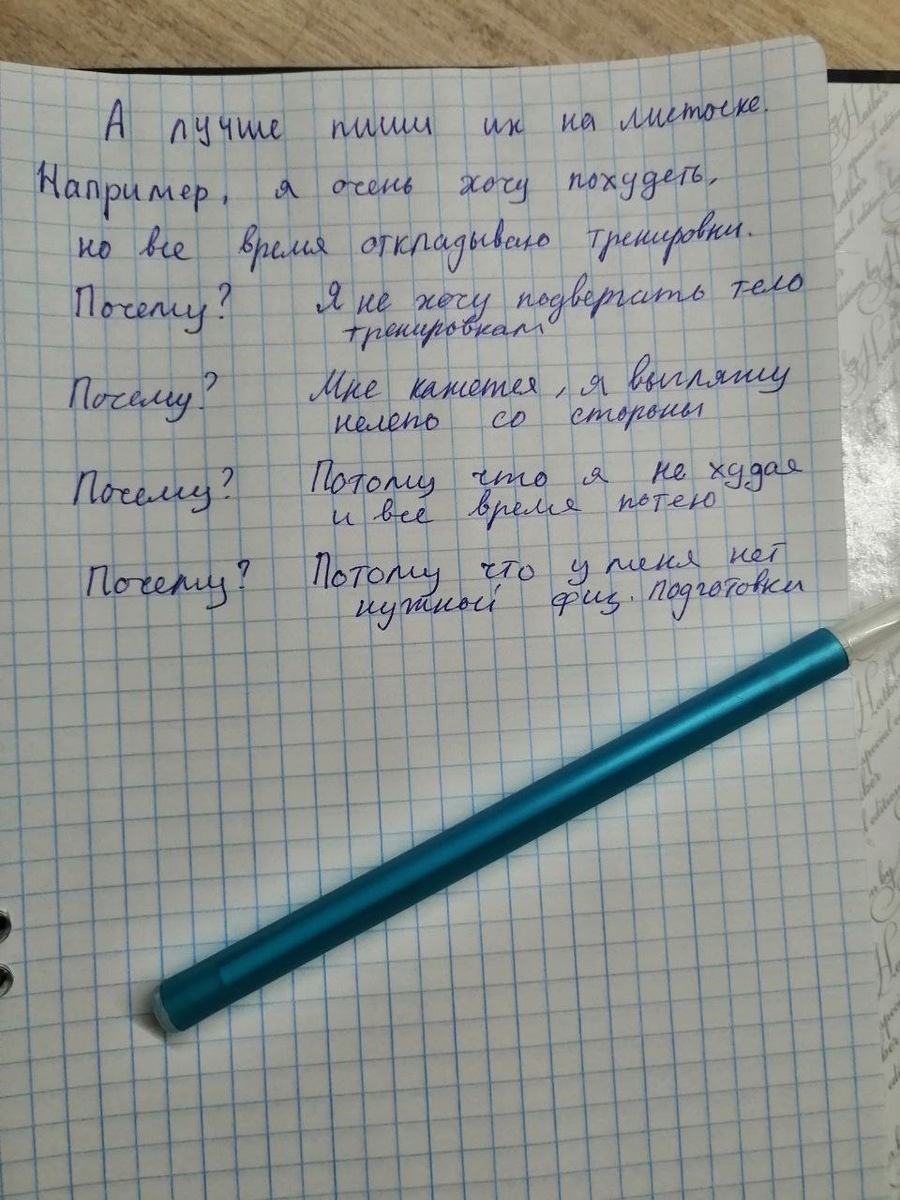 А лучше пиши их на листочке.
Например, я очень хочу похудеть,
но все время откладываю тренировки.
Почему? Я не хочу подвергать тело
тренировкам
Почему? Мне кажется, я выгляжу
нелепо со стороны
Почему? Потому что я не худая
и все время потею
Почему? Потому что у меня нет
нужной физ. подготовки